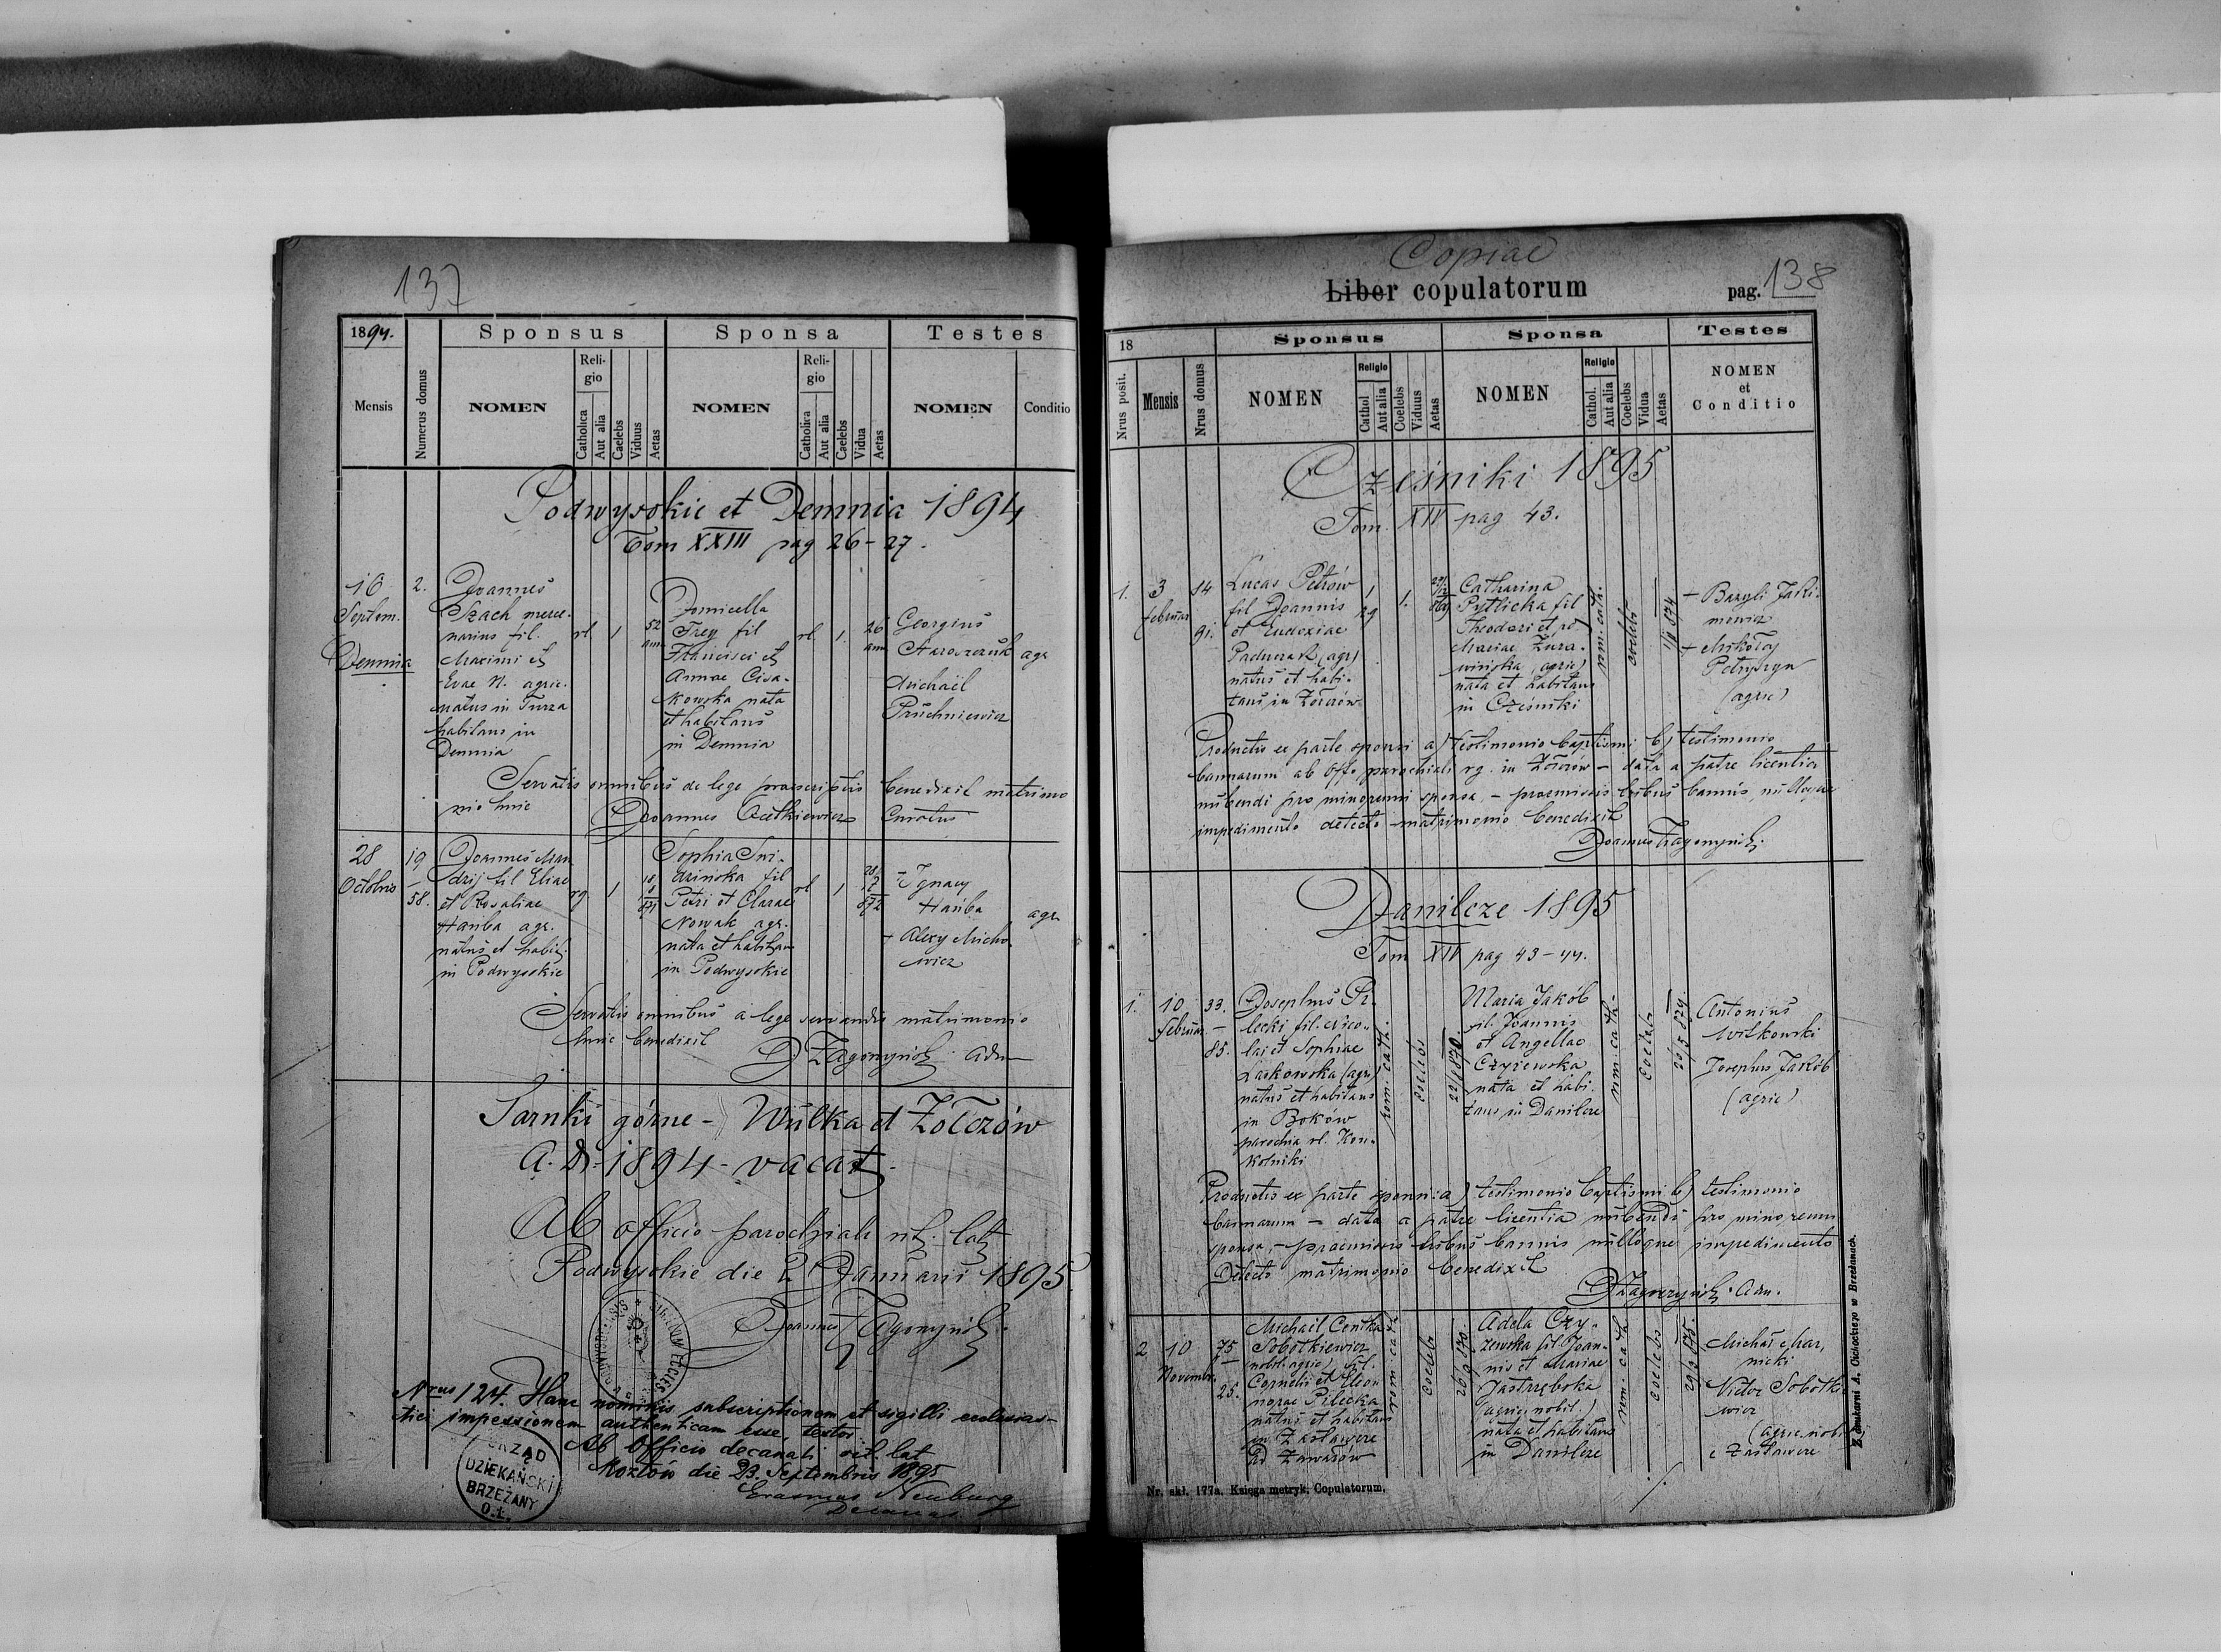 137
1894.
Sponsus
Sponsa
Testes
Mensis
Numerus domus
NOMEN
Religio
Catholica
Aut alia
Caelebs
Viduus
Aetas
NOMEN
Religio
Catholica
Aut alia
Caelebs
Vidua
Aetas
NOMEN
Conditio
Podwysokie et Demnia 1894
Tom XXIII pag 26-27.
16
Septem.
Demnia
2.
Joannes
Szach merce-
narius fil.
Maximi et
Evae N. agric.
natus in Turza
habitans in
Demnia
rl.
1
52
ann
Domicella
Frey fil
Francisci et
Annae Cisa-
kowska nata
et habitans
in Demnia
rl.
1.
26
ann
Georgius
Staroszczuk agr
Michaël
Pruchniewicz
Servatis omnibus de lege praescriptis benedixit matrimo
nio huic
Joannes Curatus
28
Octobris
19
58.
Joannes Man
drij fil Eliae
et Rosaliae
Hańba agr.
natus et habit.
in Podwysokie
rg
1
18
8
871
Sophia Sni-
Petri et Clarae
Nowak agr.
nata et habitan
in Podwysokie
rl
1
28
12
872
- Ignacy
Hańba
agr
- Alexy Micho
wicz
Servatis omnibus a lege servandis matrimonio
huic benedixit
Adm
Sarnki górne - Wulka et Żołczów
A. D. 1894 - vacat.
Ab officio parochiali rit. lat
Podwysokie die 2 Januarii 1895
Joannes
Nrus 124. Hanc nominis subscriptionem et sigilli ecclesias-
tici impressionem authenticam esse, testor
Ab Officio decanali rit. lat
Kozłów die 23. Septembris 1895
Erasmus Neuburg
Decanus
URZĄD
DZIEKAŃSKI
BRZEŻANY
O.Ł.
Copiae
Liber copulatorum
pag. 138
18
Sponsus
Sponsa
Testes
Nrus posit.
Mensis
Nrus domus
NOMEN
Religio
Cathol.
Aut alia
Coelebs
Viduus
Aetas
NOMEN
Religio
Cathol.
Aut alia
Coelebs
Vidua
Aetas
NOMEN
et
Conditio
Cześniki 1895
Tom. XIV pag 43.
1.
3
februar
14
91.
Lucas Petrów
fil Joannis
et Eudoxiae
(agr)
natus et habi-
tans in Żołczów
1
rg
1.
Catharina
Pytlicka fil
Theodori et
Mariae Żura-
wińska (agric)
nata et habitans
in Cześniki
rom. cath.
coelebs
- Bazyli Jaki-
mowicz
+ Mikołaj
Petryszyn
(agric)
Productis ex parte sponsi a) testimonio baptismi b) testimonio
bannorum ab Offo parochiali rg. in Żołczów - data a patre licentia
nubendi pro minorenni sponsa, - praemissis tribus bannis, nulloque
impedimento detecto matrimonio benedixit
Joannes
Danilcze 1895
Tom XIV pag 43-44.
1.
10
februar
33.
85.
Josephus Pi-
lecki fil. Nico-
lai et Sophiae
Laskowska (agr)
natus et habitans
in Boków
parochia rl. Kon-
kolniki
rom. cath.
coelebs
Maria Jakób
fil. Joannis
et Angellae
Czyżewska
nata et habi-
tans in Danilcze
rom. cath.
coelebs
Antonius
Witkowski
Josephus Jakób
(agric)
Productis ex parte sponsi a) testimonio baptismi b) testimonio
bannorum - data a patre licentia nubendi pro minorenni
sponsa, - praemissis tribus bannis nulloque impedimento
Detecto matrimonio benedixit
Adm.
2
10
Novembr.
75
25.
Michaël Centka
Sobotkiewicz
(nobil. agric) fil.
Cornelii et Eleo-
norae Pilecka
natus et habitans
in Zastawcze
ad Zawałów
rom. cath
coelebs
26/9 870.
Adela Czy-
żewska fil Joan-
nis et Mariae
Jastrzębska
(agric. nobil.)
nata et habitans
in Danilcze
rom. cath
coelebs
29/3 875.
Michał Mar,
nicki
Victor Sobotk-
wicz
(agric. nobil)
e Zastawcze
Nr. skł. 177a. Księga metryk. Copulatorum.
Z drukarni A. Cichockiego w Brzeżanach.